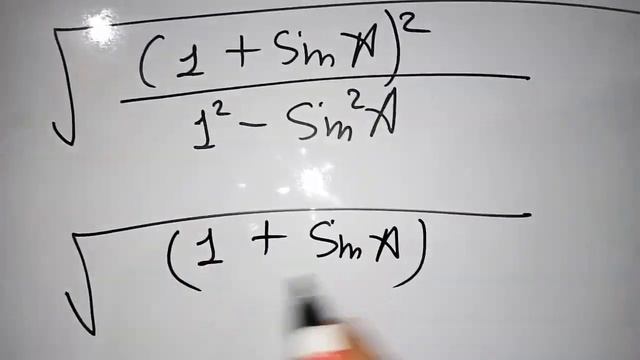 √((1 + Sin A)²
1² - Sin² A)
√(1 + Sin A)